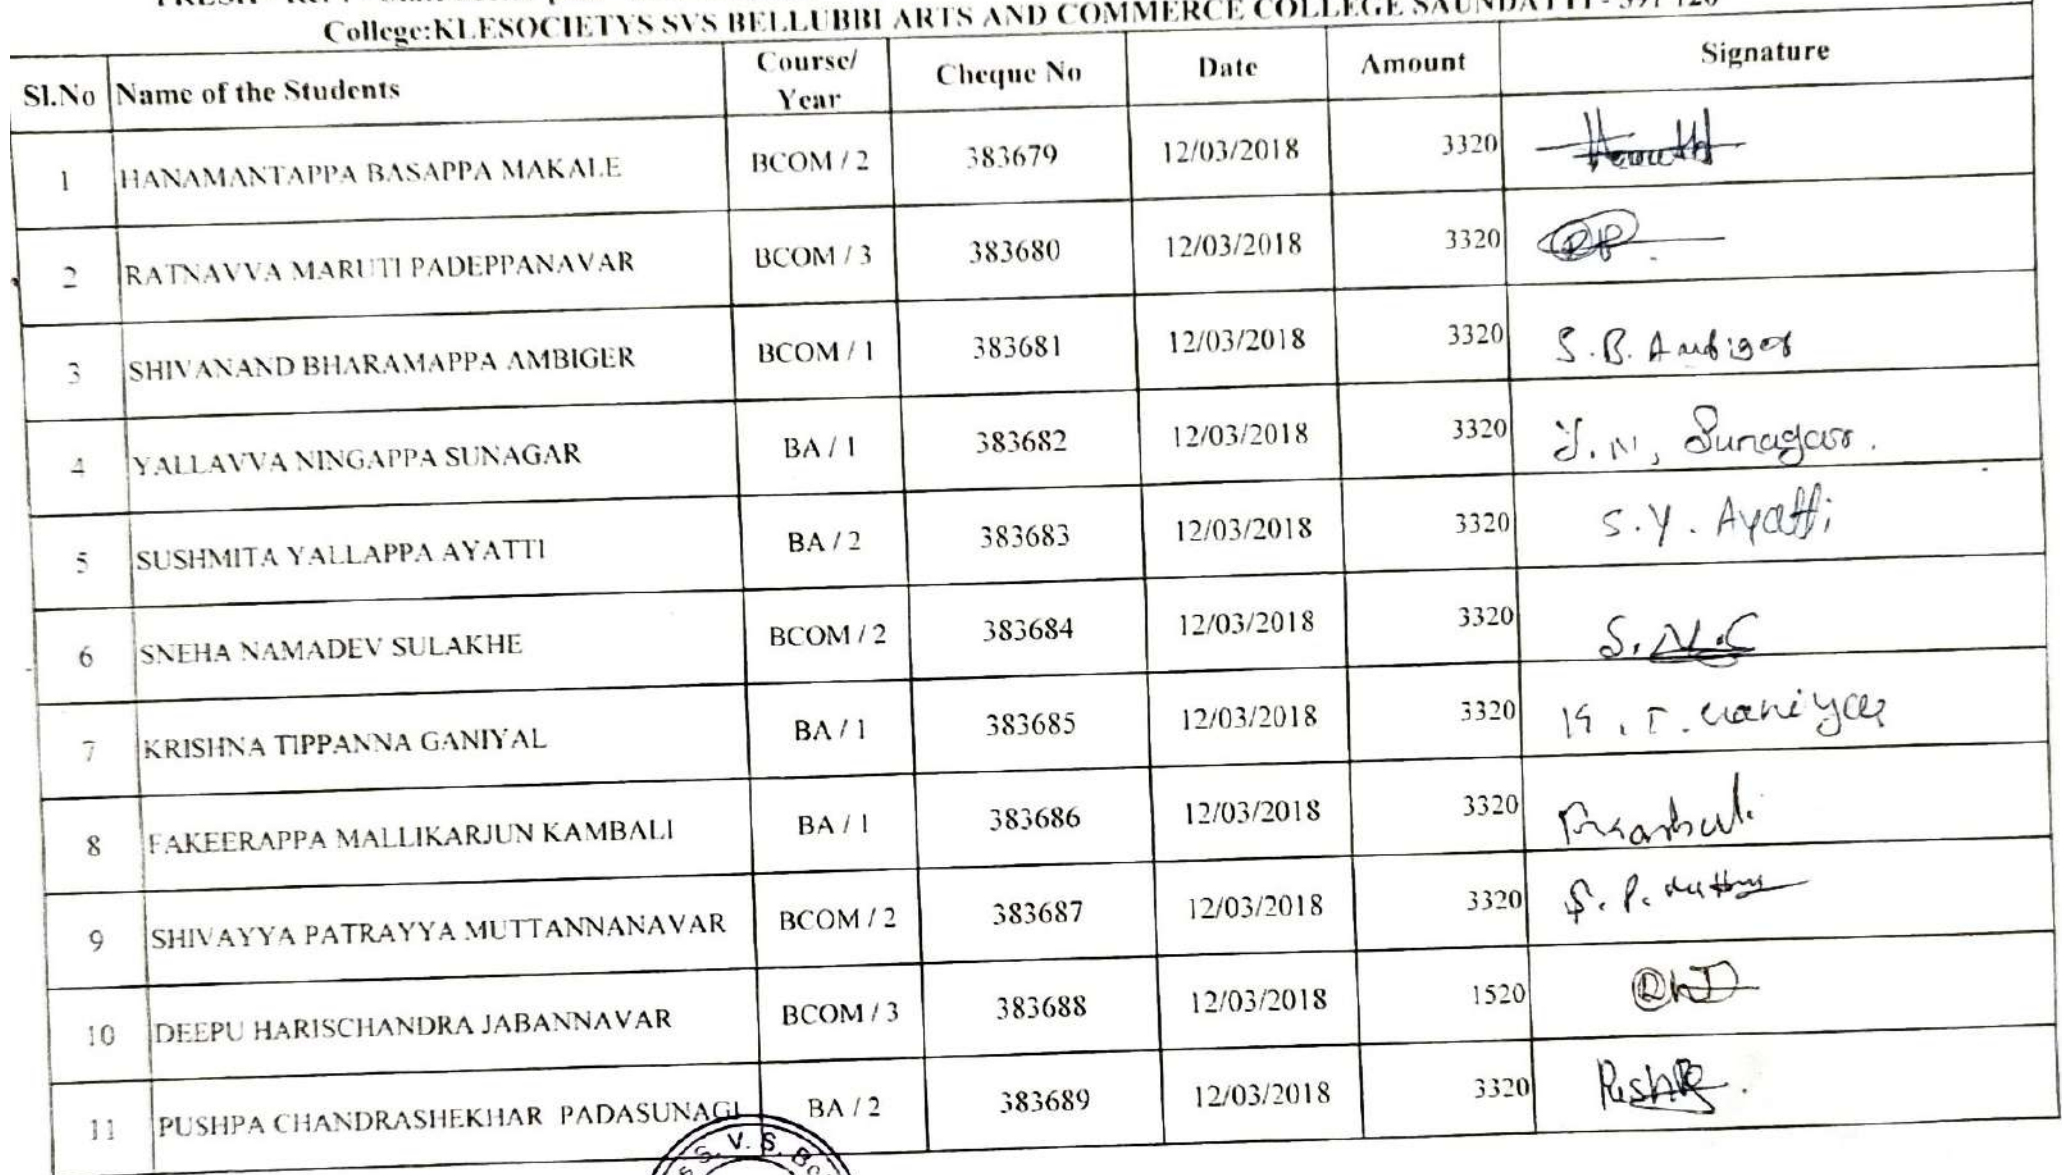 College:KLESOCIETYS SVS BELLUBBI ARTS AND COMMERCE COLLEGE SAUNDATTI - 591 126
Sl.No Name of the Students Course/ Year Cheque No Date Amount Signature
1 HANAMANTAPPA BASAPPA MAKALE BCOM / 2 383679 12/03/2018 3320
2 RATNAVVA MARUTI PADEPPANAVAR BCOM / 3 383680 12/03/2018 3320
3 SHIVANAND BHARAMAPPA AMBIGER BCOM / 1 383681 12/03/2018 3320 S.B. Ambiger
4 YALLAVVA NINGAPPA SUNAGAR BA / 1 383682 12/03/2018 3320 Y.N, Sunagar.
5 SUSHMITA YALLAPPA AYATTI BA / 2 383683 12/03/2018 3320 S.Y. Ayatti
6 SNEHA NAMADEV SULAKHE BCOM / 2 383684 12/03/2018 3320 S.N.S
7 KRISHNA TIPPANNA GANIYAL BA / 1 383685 12/03/2018 3320 K.T. Ganiyal
8 FAKEERAPPA MALLIKARJUN KAMBALI BA / 1 383686 12/03/2018 3320
9 SHIVAYYA PATRAYYA MUTTANNANAVAR BCOM / 2 383687 12/03/2018 3320 S.P.
10 DEEPU HARISCHANDRA JABANNAVAR BCOM / 3 383688 12/03/2018 1520
11 PUSHPA CHANDRASHEKHAR PADASUNAGI BA / 2 383689 12/03/2018 3320
S. V. S.